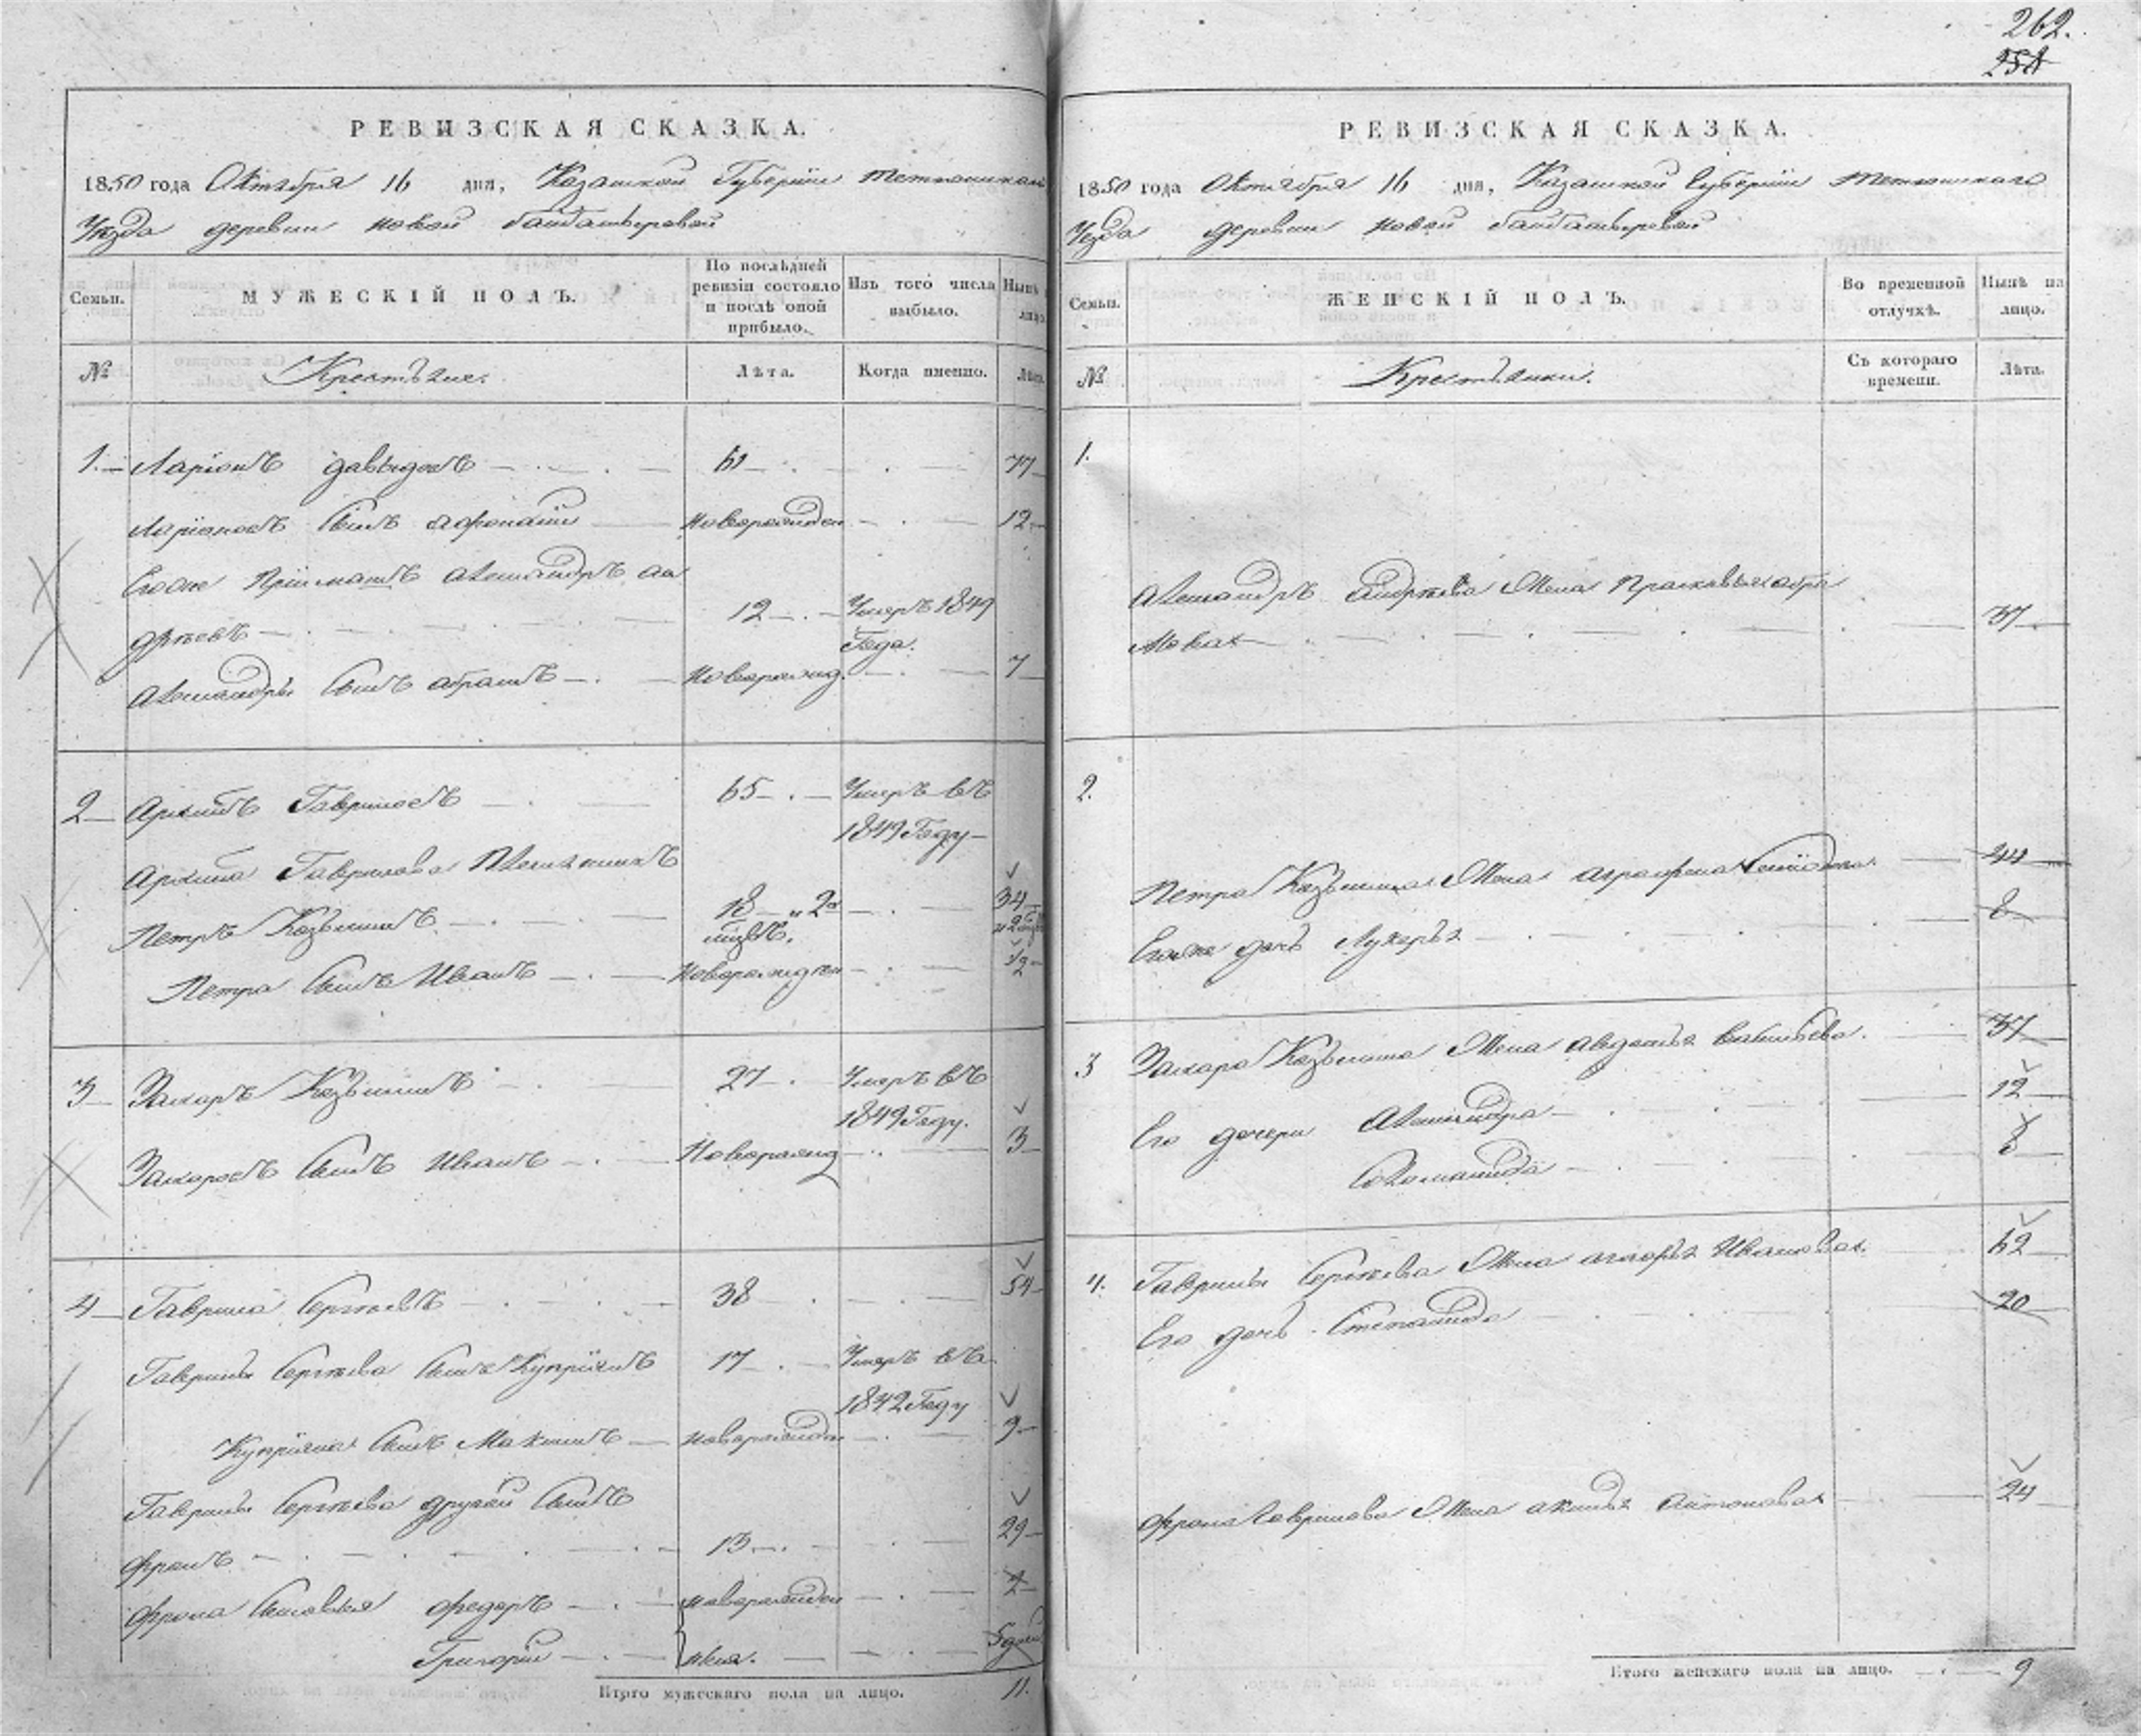 262.
РЕВИЗСКАЯ СКАЗКА.
1850 года Октября 16 дня, Казанской Губернiи Тетюшскаго
Уѣзда деревни новой байбатыревой
Семьи. МУЖЕСКІЙ ПОЛЪ. По послѣдней ревизіи состояло и послѣ оной прибыло. Изъ того числа выбыло. Нынѣ на лицо.
№ Крестьяне. Лѣта. Когда именно. Лѣта.
1. Ларіонъ давыдовъ 61 77
Ларіоновъ Сынъ афонасiй Новорожден 12
Егоже Прiимышъ александръ ан
дрѣевъ 12 Умеръ 1849
Года.
Александры Сынъ абрамъ Новорожд. 7
2 Архипъ Гавриловъ 65 Умеръ въ
1849 Году
Архипа Гаврилова Племянникъ
Петръ Козьминъ 18 2х 34
мѣсѣ.
Петра Сынъ Иванъ Новорожден 12
3 Захаръ Козьминъ 27 Умеръ въ
1849 Году.
Захаровъ Сынъ Иванъ Новорожд 3
4 Гаврила Сергѣевъ 38 54
Гаврилы Сергѣева Сынъ Купрiянъ 17 Умеръ въ
1842 Году
Купрiяна Сынъ Максимъ новорожден 9
Гаврилы Сергѣева другой Сынъ
фролъ 13 29
фрола Сыновья федоръ новорожден 2
Григорiй ныя. 5 дней
Итого мужескаго пола на лицо. 11.
РЕВИЗСКАЯ СКАЗКА.
1850 года Октября 16 дня, Казанской Губернiи Тетюшскаго
Уезда деревни новой байбатыревой
Семьи. ЖЕНСКІЙ ПОЛЪ. Во временной отлучкѣ. Нынѣ на лицо.
№ Крестьянки. Съ котораго времени. Лѣта.
1.
Александръ андрѣева Жена Прасковья абра
мова 37
2.
Петра Козьмина Жена аграфена 44
Егоже дочь Лукерья 8
3 Захара Козьмина Жена авдотья васильева. 37
Его дочери Александра 12
Соломанида 6
4. Гаврилы Сергѣева Жена Ивановах. 62
Его дочь Степанида 20
фрола Гаврилова Жена акулина антонова 24
Итого женскаго пола на лицо. 9